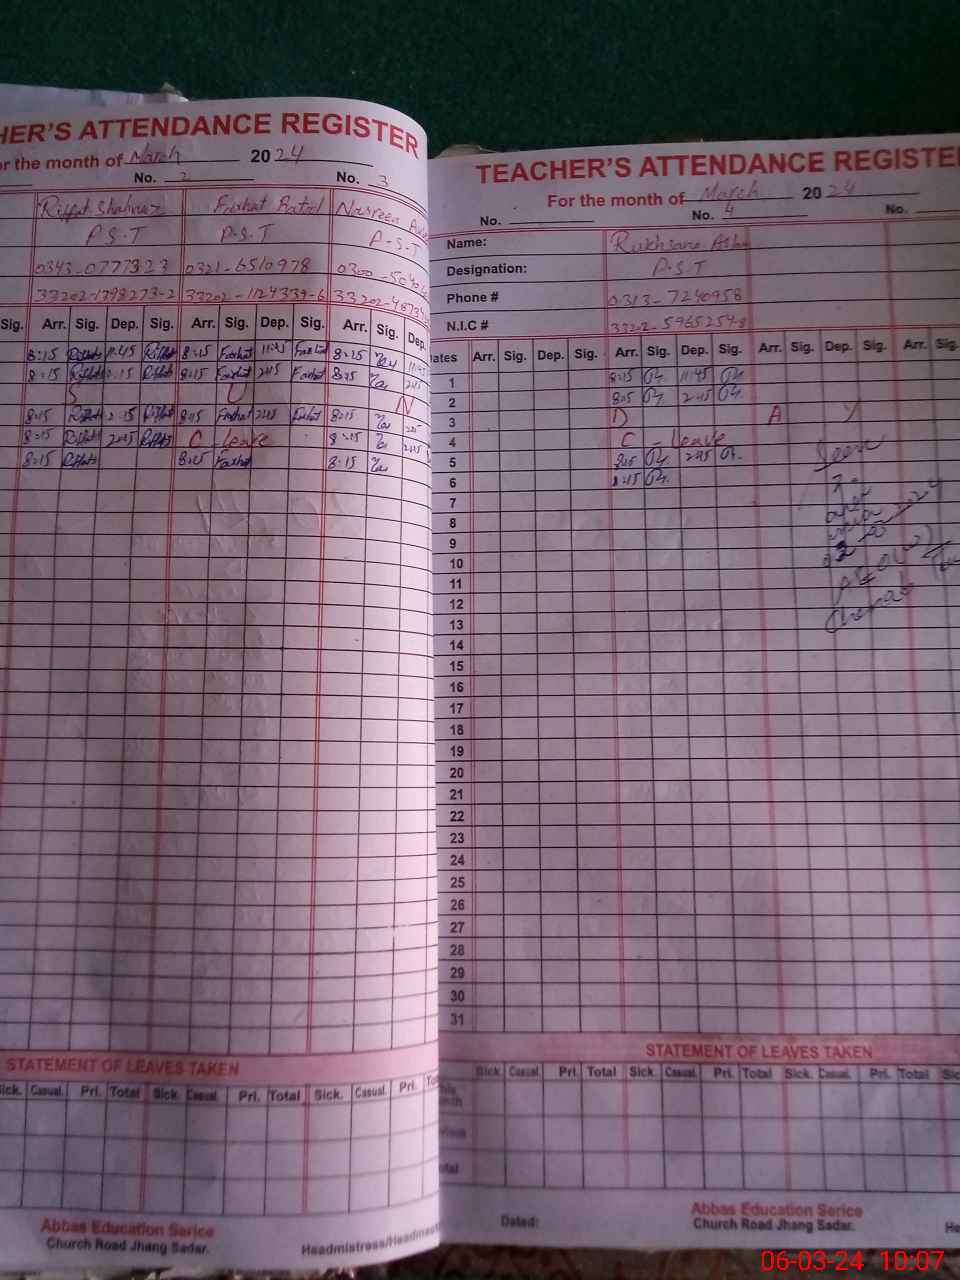 HER'S ATTENDANCE REGISTER
or the month of March 2024
No. 2 No. 3
Riffat Shahnaz Farhat Batool Nasreen
P.S.T P.S.T P.S.T
0343-0777323 0321-6510978 0300-5040
33202-1398273-2 33202-1124339-6 33202-4873
Sig. Arr. Sig. Dep. Sig. Arr. Sig. Dep. Sig. Arr. Sig. Dep.
8:15 Riffat 11:45 Riffat 8:15 Farhat 11:45 Farhat 8:15 11:45
8:15 Riffat 2:15 Riffat 8:15 Farhat 2:45 Farhat 8:15 2:45
S U N
8:15 Riffat 2:15 Riffat 8:15 Farhat 2:45 Farhat 8:15 2:45
8:15 Riffat 2:45 Riffat C leave 8:15 2:45
8:15 Riffat 8:15 Farhat 8:15
STATEMENT OF LEAVES TAKEN
Sick. Casual. Pri. Total Sick. Casual. Pri. Total Sick. Casual. Pri.
Abbas Education Serice
Church Road Jhang Sadar.
Headmistress/Headmast
TEACHER'S ATTENDANCE REGISTE
For the month of March 2024
No. No. 4 No.
Name: Rukhsana
Designation: P.S.T
Phone # 0313-7240958
N.I.C # 33202-5965254-8
ates Arr. Sig. Dep. Sig. Arr. Sig. Dep. Sig. Arr. Sig. Dep. Sig. Arr. Sig.
1 8:15 11:45
2 8:15 2:45
3 D A Y
4 C - leave
5 8:15 2:45
6 8:15
7
8
9
10
11
12
13
14
15
16
17
18
19
20
21
22
23
24
25
26
27
28
29
30
31
Seen
STATEMENT OF LEAVES TAKEN
Sick. Casual. Pri. Total Sick. Casual. Pri. Total Sick. Casual. Pri. Total
Dated:
Abbas Education Serice
Church Road Jhang Sadar.
He
06-03-24 10:07